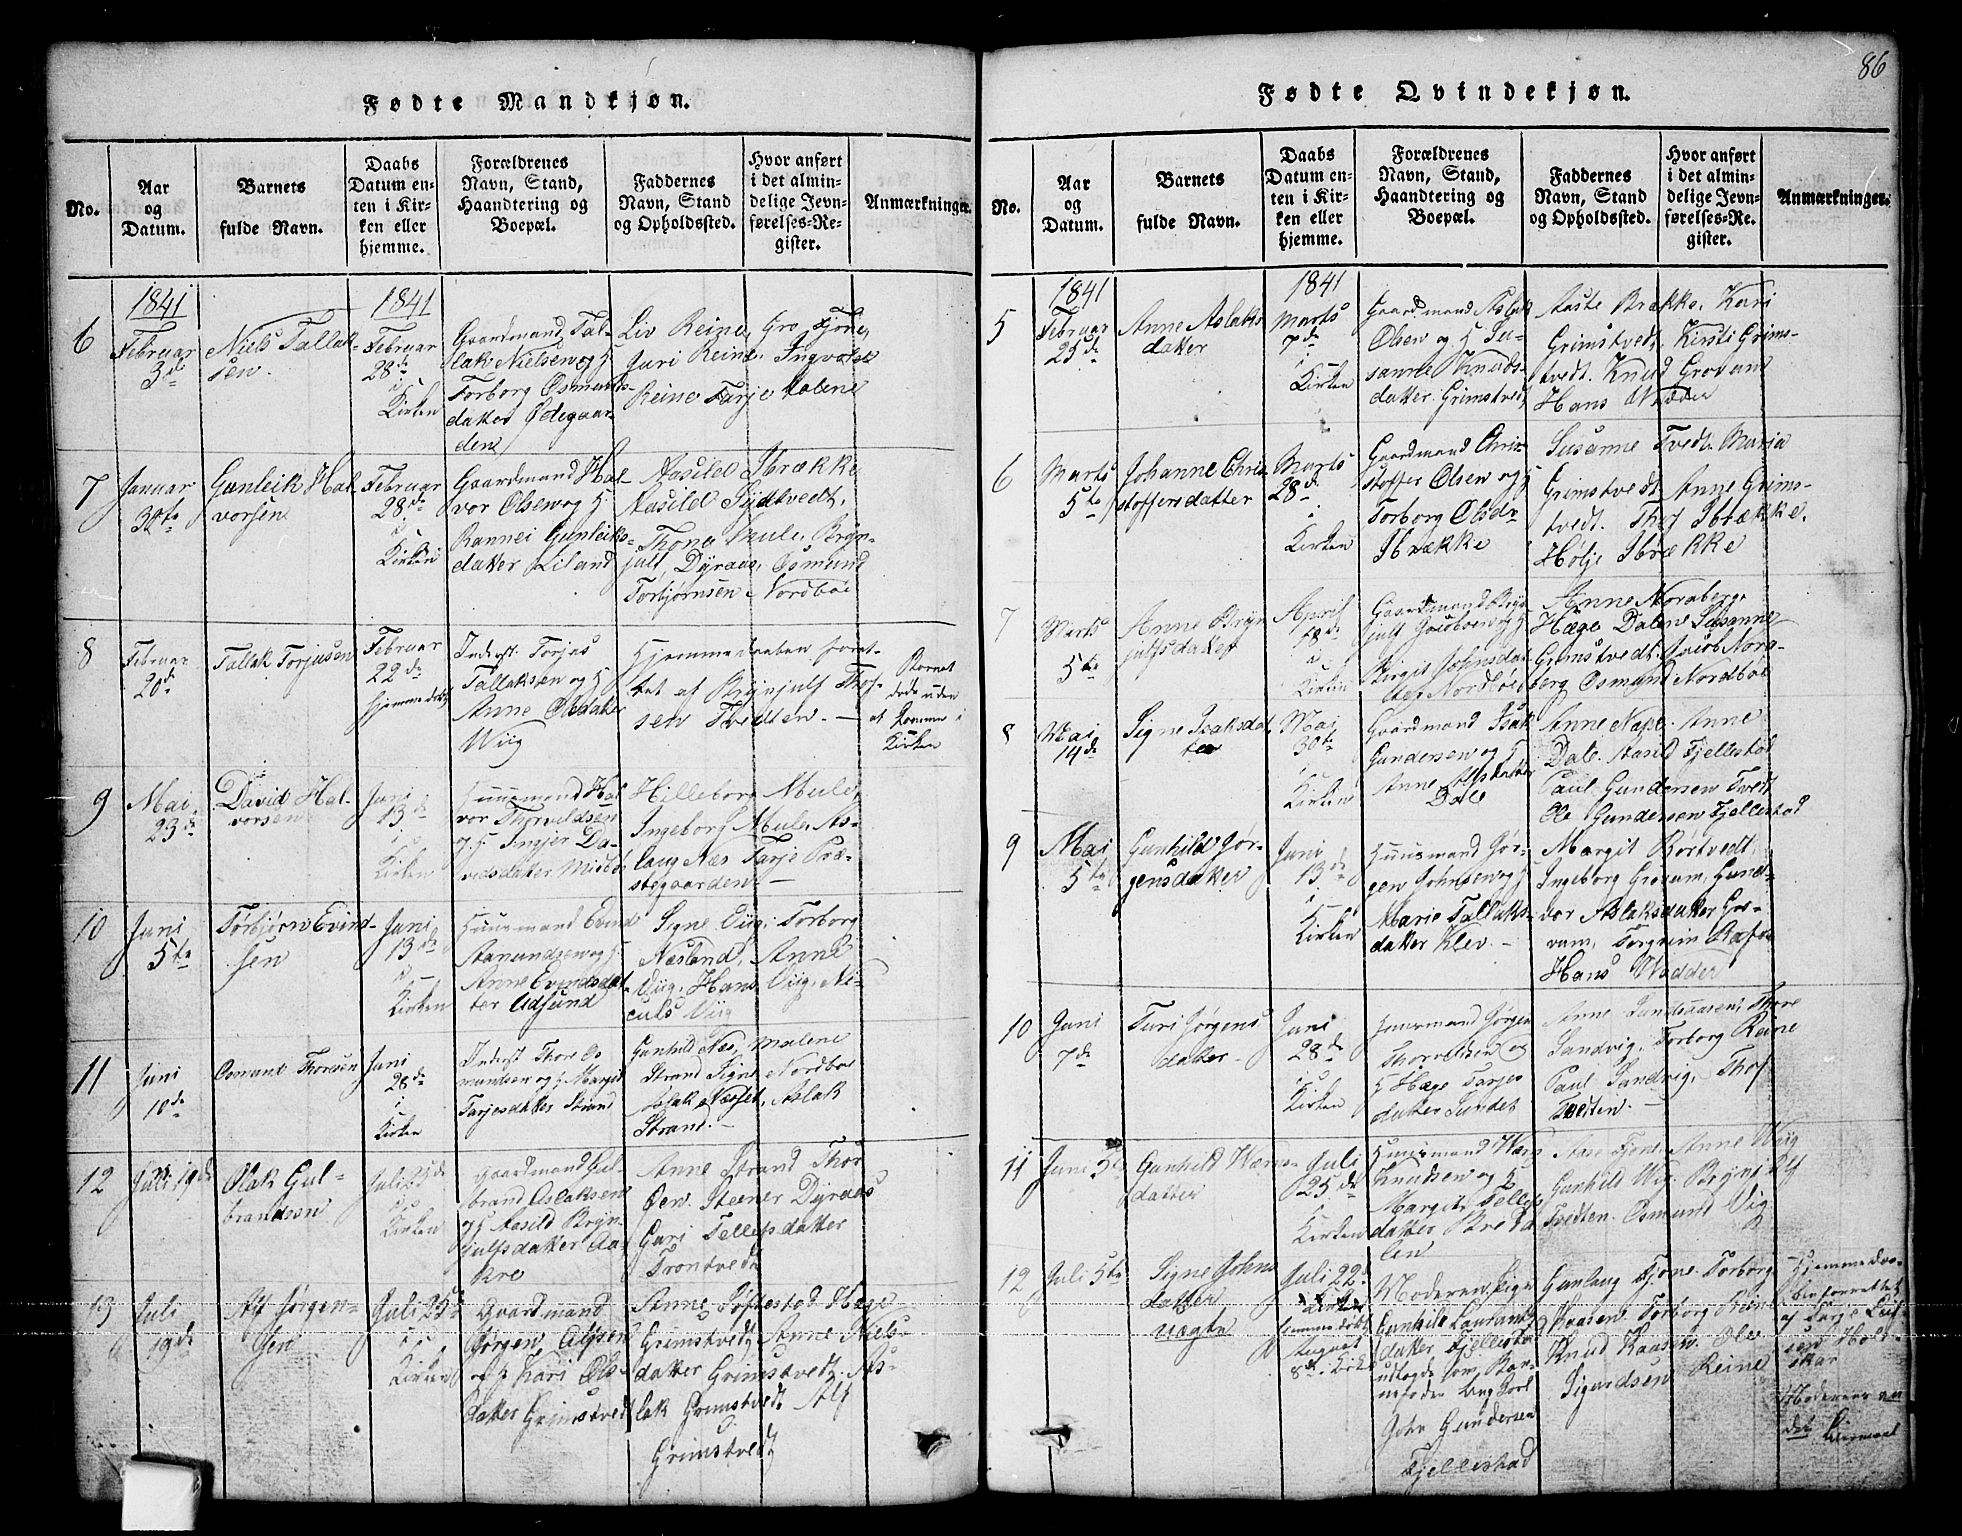 Fødte Mandkjøn.
No.
Aar
og
Datum.
Barnets
fulde Navn.
Daabs
Datum en-
ten i Kir-
ken eller
hjemme.
Forældrenes
Navn, Stand,
Haandtering og
Boepæl.
Faddernes
Navn, Stand
og Opholdssted.
Hvor anført
i det almin-
delige Jevn-
førelses-Re-
gister.
Anmærkninger.
6
1841
Februar
3de
Niels Tallak-
sen
1841
Februar
28de
i
Kirken
Gaardmand Tal-
lak Nielsen og H
Torborg Osmunds-
datter Ødegaar-
den
Liv Reine, Gro Fjone,
Juri Reine, Ingvald
Reine Tarje Dalene
7
Januar
30te
Gunleik Hal-
vorsen
Februar
28de
i
Kirken
Gaardmand Hal-
vor Olsen og H
Rannei Gunleiks-
datter Liland
Aasild Ibrække
Aasild Sydtvedt,
Thone Mule, Bryn-
julf Dyraas, Osmund
Torbjørnsen Nordboe
8
Februar
20de
Tallak Torjusen
Februar
22de
Hjemmedøbt
Inderst Torjus
Tallaksen og H
Anne Olsdatter
Wiig
Hjemmedaaben forret-
tet af Brynjulf Thof-
sen Tvedten. —
Barnet
døde uden
at komme i
Kirken
9
Mai
23de
David Hal-
vorsen
Juni
13de
i
Kirken
Huusmand Hal-
vor Thorvildsen
og H Ingjer Da-
vidsdatter
Hilleborg Mule,
Ingeborg Mule, As-
laug Næs Tarje Præ-
stegaarden. —
10
Juni
5te
Torbjørn Evind-
sen
Juni
13de
i
Kirken
Huusmand Evind
Aanundsen og H
Anne Evindsdat-
ter Udsund
Signe Viig, Torborg
Næsland, Anne
Viig, Hans Viig, Ni-
culs Viig
11
Juni
10de
Osmund Thoresen
Juni
28de
i
Kirken
Inderst Thore Os-
mundsen og H Margit
Tarjesdatter Strand
Gunhild Næs, Malene
Strand Signe Nordboe
Aslak Næsset, Aslak
Strand. —
12
Juli 19de
Olak Gul-
brandsen
Juli 25de
i
Kirken
Gaardmand Gul-
brand Aslaksen
og H Aasild Bryn-
julfsdatter Aa-
kre
Anne Strand Thor
Øen. Steener Dyraas
Guri Tellefsdatter
Trontvedt
13
Juli
19de
Alf Jørgen-
sen
Juli 25de
i
Kirken
Gaardmand
Jørgen Alfsen
og H Kari Ols-
datter Grimstvedt
Anne Joftestad Hæge
Grimstvedt, Anne Niels-
datter Grimstvedt. As-
lak Grimstvedt Alf
Grimstvedt
86
Fødte Qvindekjøn.
No.
Aar
og
Datum.
Barnets
fulde Navn.
Daabs
Datum en-
ten i Kir-
ken eller
hjemme.
Forældrenes
Navn, Stand,
Haandtering og
Boepæl.
Faddernes
Navn, Stand
og Opholdssted.
Hvor anført
i det almin-
delige Jevn-
førelses-Re-
gister.
Anmærkninger.
5
1841
Februar
25de
Anne Aslaks-
datter
1841
Marts
7de
i
Kirken
Gaardmand Aslak
Olsen og H Su-
sanne Knuds-
datter Grimstvedt
Aaste Brække, Kari
Grimstvedt, Kirsti Grims-
tvedt. Knud Grovum
Hans Wadder
6
Marts
5te
Johanne Chri-
stoffersdatter
Marts
28de
i
Kirken
Gaardmand Chri-
stoffer Olsen og H
Torborg Olsdr
Ibrække
Susanne Tvedt. Maria
Grimstvedt Anne Grims-
tvedt. Thof Ibrække,
Hølje Ibrække
7
Marts
5te
Anne Bryn-
julfsdatter
April
18de
i
Kirken
Gaardmand Bryn-
julf Jacobsen og H
Birgit Johnsdat-
ter Nordboe
Anne Noraberg,
Hæge Dalen Susanne
Grimstvedt. Jacob Nora-
berg Osmund Nordboe
8
Mai
14de
Signe Isaksdat-
ter
Mai
30te
i
Kirken
Gaardmand Isak
Gundersen og H
Anne
Dale
Anne Nape. Anne
Dale. Aasild Fjellestad
Paul Gundersen Tvedt
Ole Gundersen Fjellestad
9
Mai
5te
Gunhild Jør-
gensdatter
Juni
13de
i
Kirken
Huusmand Jør-
gen Johnsen og H
Marie Tallaks-
datter Klev. —
Margit Rørtvedt
Ingeborg Grovum, Gund-
vor Aslaksdatter Gro-
vum, Torgrim
Hans Wadder
10
Juni
7de
Turi Jørgens-
datter
Juni
28de
i
Kirken
Huusmand Jørgen
Thorvildsen og
H Hæge Tarjes-
datter Sundet
Anne Thore
Sandvig, Torborg Reine
Paul Sandvig, Thof
Tvedten. —
11
Juni 5te
Gunhild
datter
Juli
25de
i
Kirken
Huusmand
Knudsen og H
Margit Tellefs-
datter
len
Aase Fjone Anne Wiig
Gunhild Wiig Brynjulf
Tvedten. Osmund Viig
12
Juli 5te
Signe Johns-
datter
uægte
Juli 22de
Kirken
hjemmedøbt
August
8de i Kirk
Moderen Pige
Gunhild Laurants-
datter Fjellestad
udlagde som Bar-
nefader Ung Karl
John Gundersen
Fjellestad
Gunlaug Fjone Torborg
Kaasen. Torborg Reine
Knud Kaasen. Ole
Sigurdsen Reine
Hjemmedaa-
ben forrettet
af Tarje
sen
Moderens
det Leiermaal